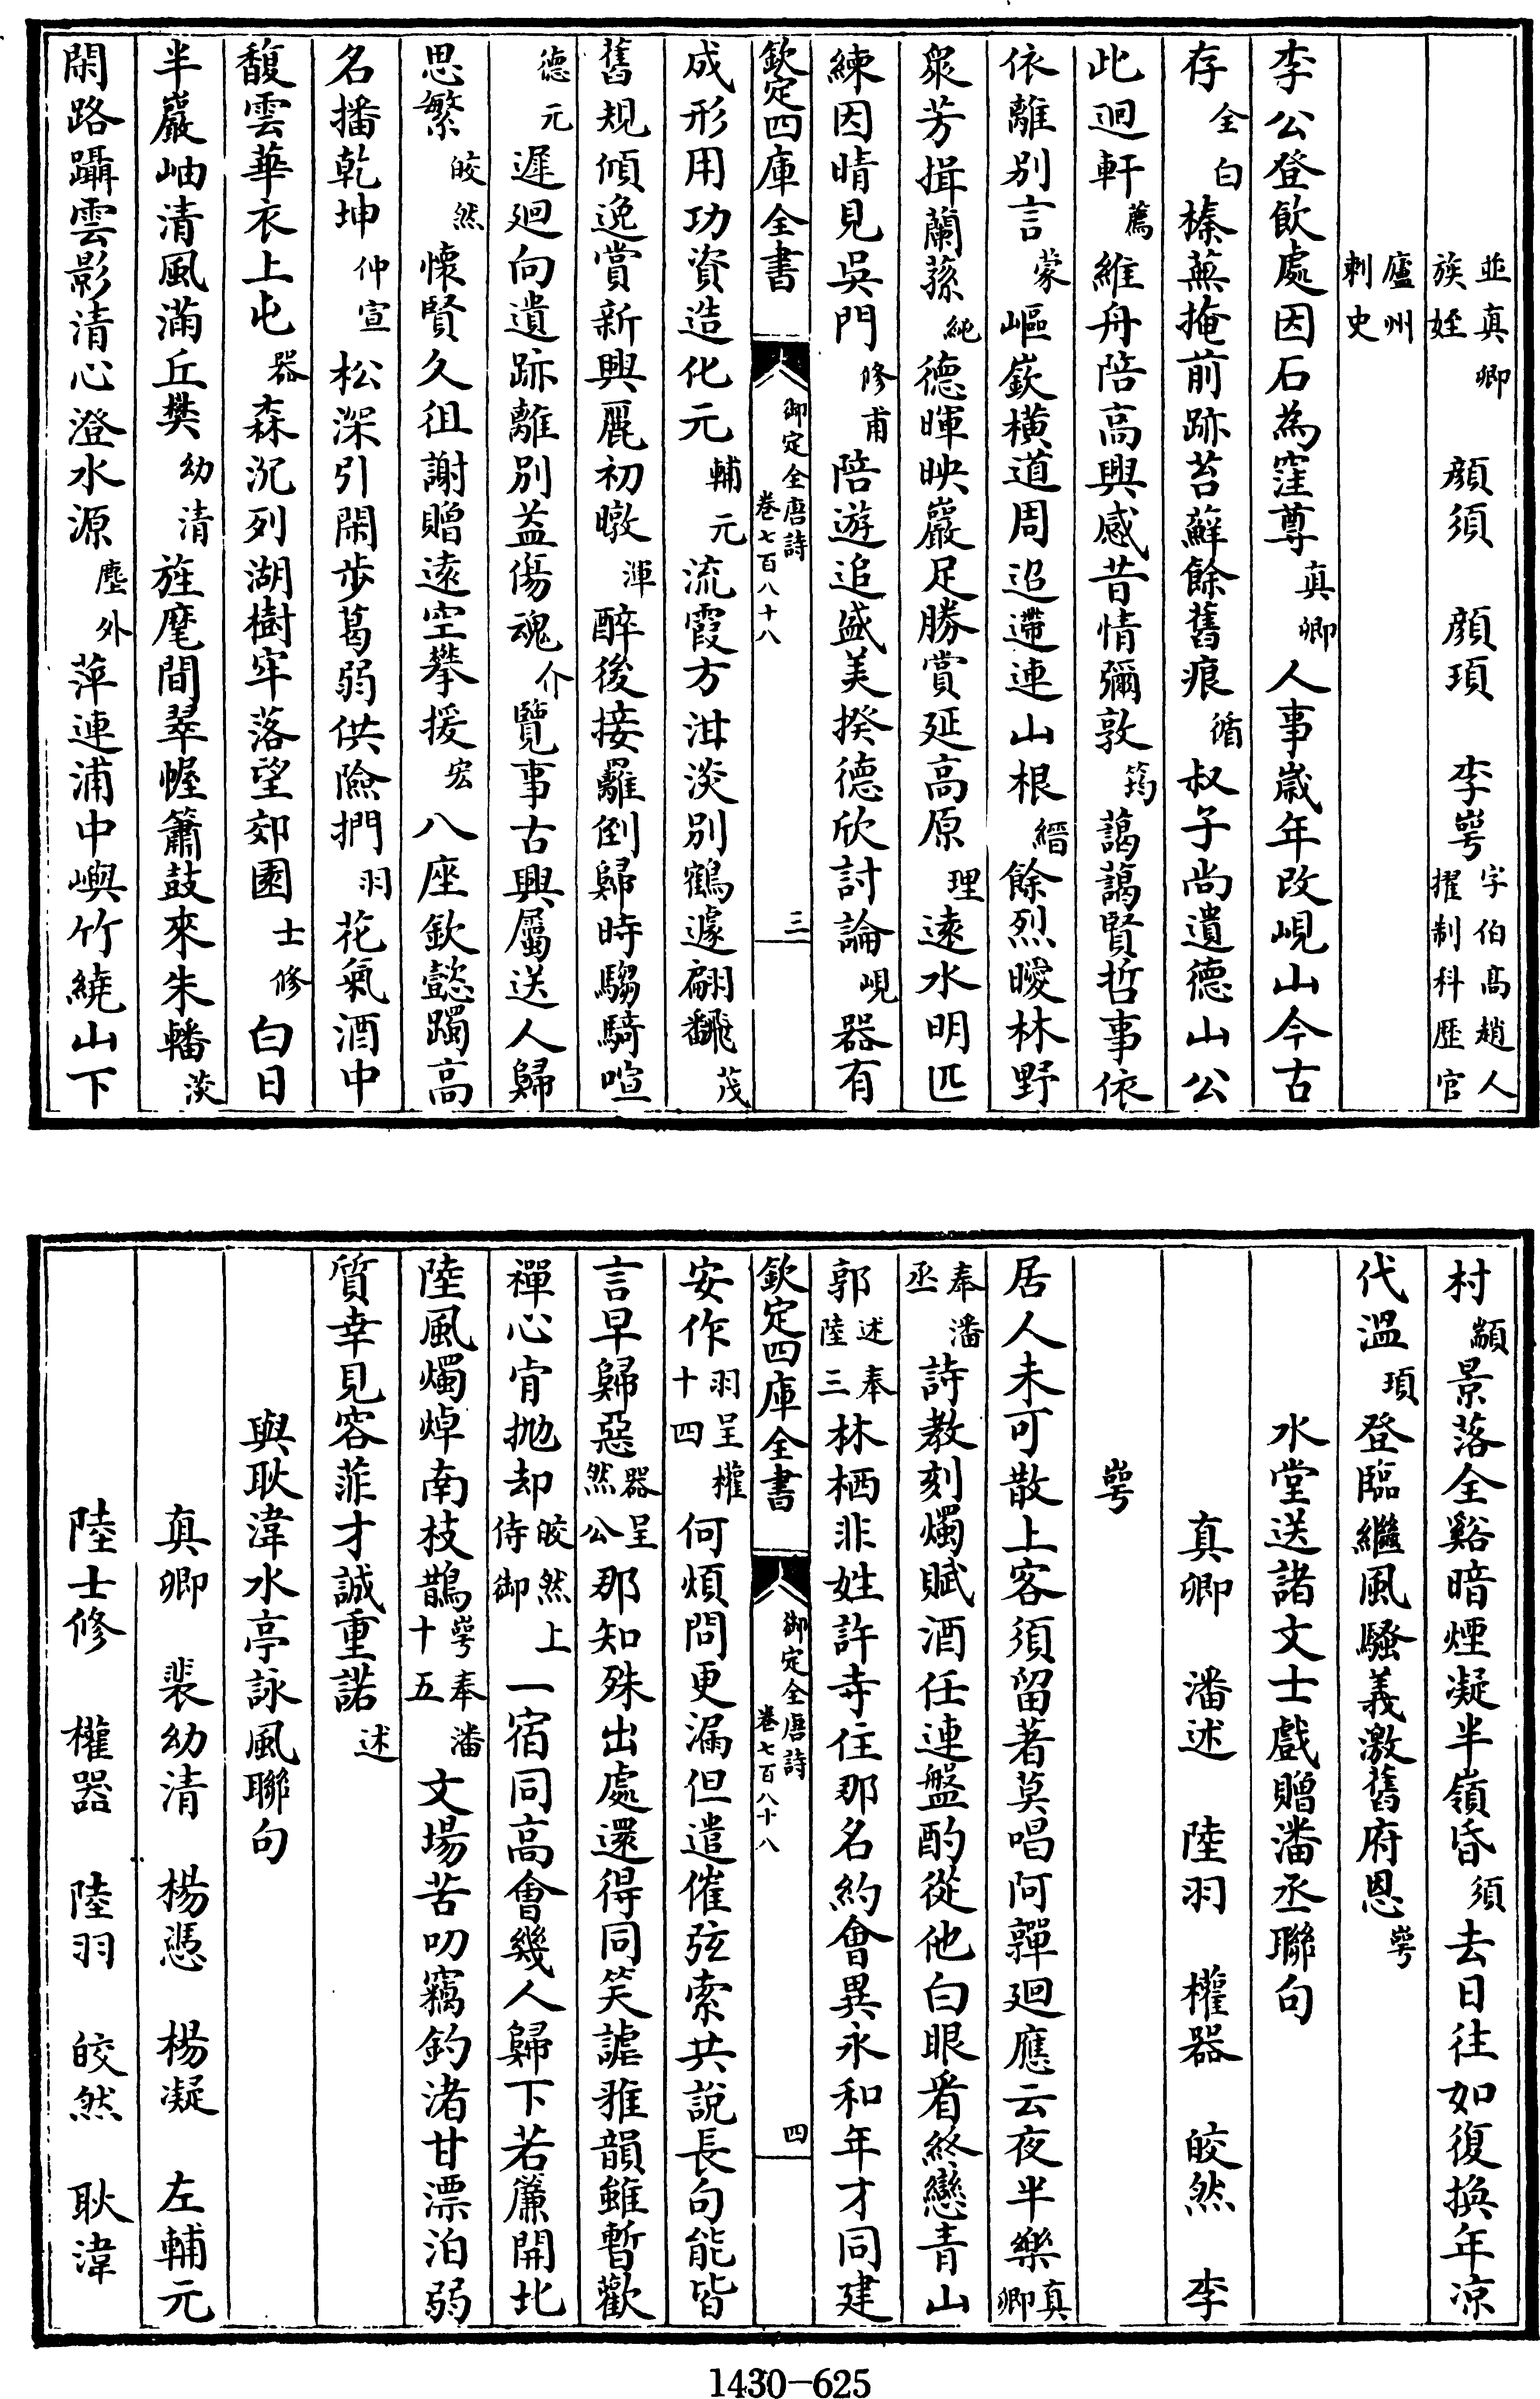 並真卿族姪　顔須　顔頊　李崿字伯高趙人擢制科歷官
廬州刺史
李公登飲處因石為窪尊真卿人事歲年改峴山今古
存全白榛蕪掩前跡苔蘚餘舊痕循叔子尚遺德山公
此迴軒薦維舟陪高興感昔情彌敦筠藹藹賢哲事依
依離别言蒙嶇嶔横道周迢遰連山根縉餘烈曖林野
衆芳揖蘭蓀純德暉映巖足勝賞延高原理遠水明匹
練因晴見吳門修甫陪遊追盛美揆德欣討論峴器有
欽定四庫全書　御定全唐詩卷七百八十八　三
成形用功資造化元輔元流霞方泔淡别鶴遽翩翻茂
舊規傾逸賞新興麗初暾渾醉後接䍦倒歸時騶騎喧
德元遲廻向遺跡離别益傷魂介覽事古興屬送人歸
思繁皎然懷賢久徂謝贈遠空攀援宏八座欽懿躅高
名播乾坤仲宣松深引閑步葛弱供險捫羽花氣酒中
馥雲華衣上屯器森沉列湖樹牢落望郊園士修白日
半巖岫清風滿丘樊幼清旌麾間翠幄簫鼓來朱轓淡
閑路躡雲影清心澄水源塵外萍連浦中嶼竹繞山下
村顓景落全谿暗煙凝半嶺昏須去日往如復換年凉
代溫頊登臨繼風騷義激舊府恩崿
水堂送諸文士戲贈潘丞聯句
真卿　潘述　陸羽　權器　皎然　李
崿
居人未可散上客須留著莫唱阿嚲廻應云夜半樂真卿
奉潘丞詩教刻燭賦酒任連盤酌從他白眼看終戀青山
郭述奉陸三林栖非姓許寺住那名約會異永和年才同建
安作羽呈權十四何煩問更漏但遣催弦索共說長句能皆
欽定四庫全書　御定全唐詩卷七百八十八　四
言早歸惡器呈然公那知殊出處還得同笑謔雅韻雖暫歡
禪心肯抛却皎然上侍御一宿同高會幾人歸下若簾開北
陸風燭焯南枝鵲崿奉潘十五文場苦叨竊釣渚甘漂泊弱
質幸見容菲才誠重諾述
與耿湋水亭詠風聯句
真卿　裴幼清　楊憑　楊凝　左輔元
陸士修　權器　陸羽　皎然　耿湋
1430-625